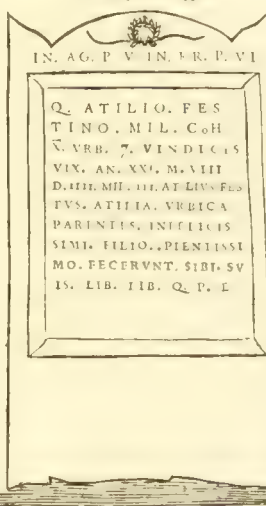 IN. AG. P V IN. FR. P. VI
Q. ATILIO. FES
TINO. MIL. CoH
X̅. VRB. 7. VINDICIS
VIX. AN. XXI. M. VIII
D. IIII. MIL. III. ATLIVS FES
TVS. ATILIA. VRBICA
PARENTES. INFELICIS
SIMI. FILIO.. PIENTISSI
MO. FECERVNT. SIBI. SV
IS. LIB. IIB. Q. P. E